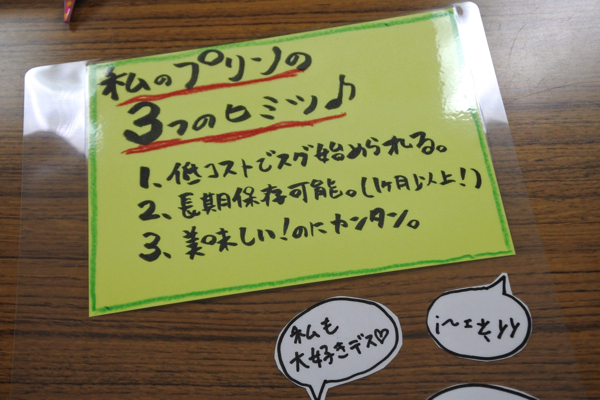 私のプリンの
3つのヒミツ♪
1、低コストでスグ始められる。
2、長期保存可能。(1ヶ月以上!)
3、美味しい!のにカンタン。
私も
大好きデス♡